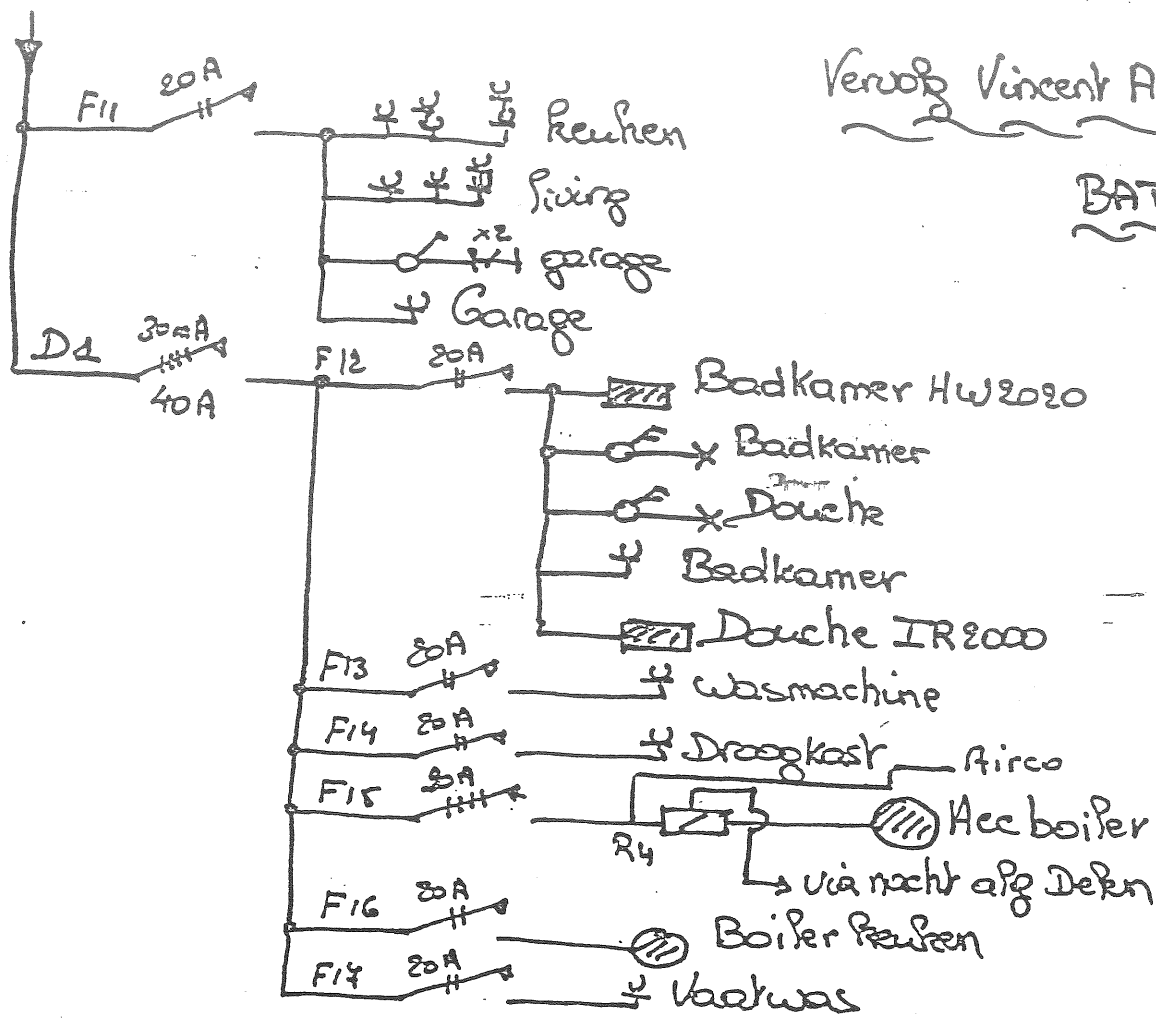 Vervolg Vincent A
BAT
F11 20A
keuken
living
x2 garage
Garage
D1 30mA
40A
F12 20A
Badkamer HW2020
Badkamer
Douche
Badkamer
Douche IR2000
F13 20A wasmachine
F14 20A Droogkast
Airco
F15 20A
R4 Acc boiler
via nacht afg
F16 20A Boiler keuken
F17 20A Vaatwas